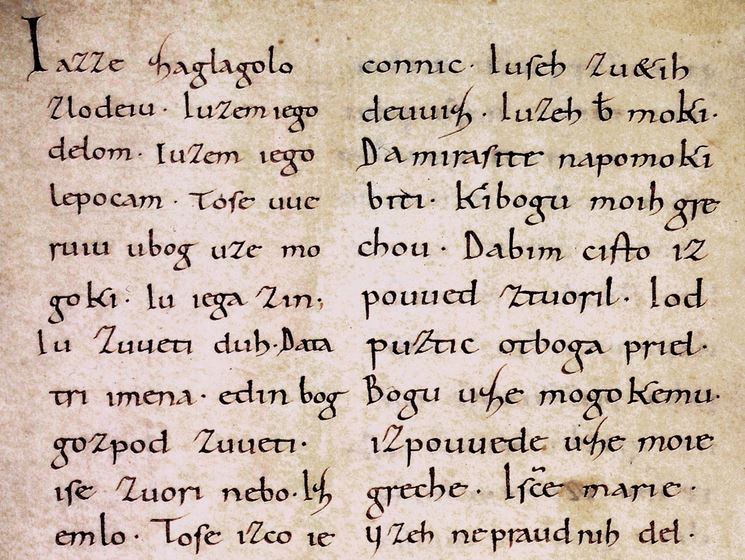 Iazze zaglagolo
zlodeiu. Iuzem iego
delom. Iuzem iego
lepocam. Tose uue
ruiu ubog uze mo
goki. Iu iega zin;
Iu zuueti duh. Data
tri imena. edin bog
gozpod zuueti.
ise zuori nebo. Iz
emlo. Tose izco ie
connic. Iuseh zu&ih
deuuiz. Iuzeh ƀ moki.
Da mi raste napomoki
biti. Kibogu moih gre
chou. Dabim cisto iz
pouued ztuoril. Iod
puztic otboga priel.
Bogu uze mogokemu.
izpouuede uze moie
greche. Isc̄e marie.
ijzeh nepraudnih del.